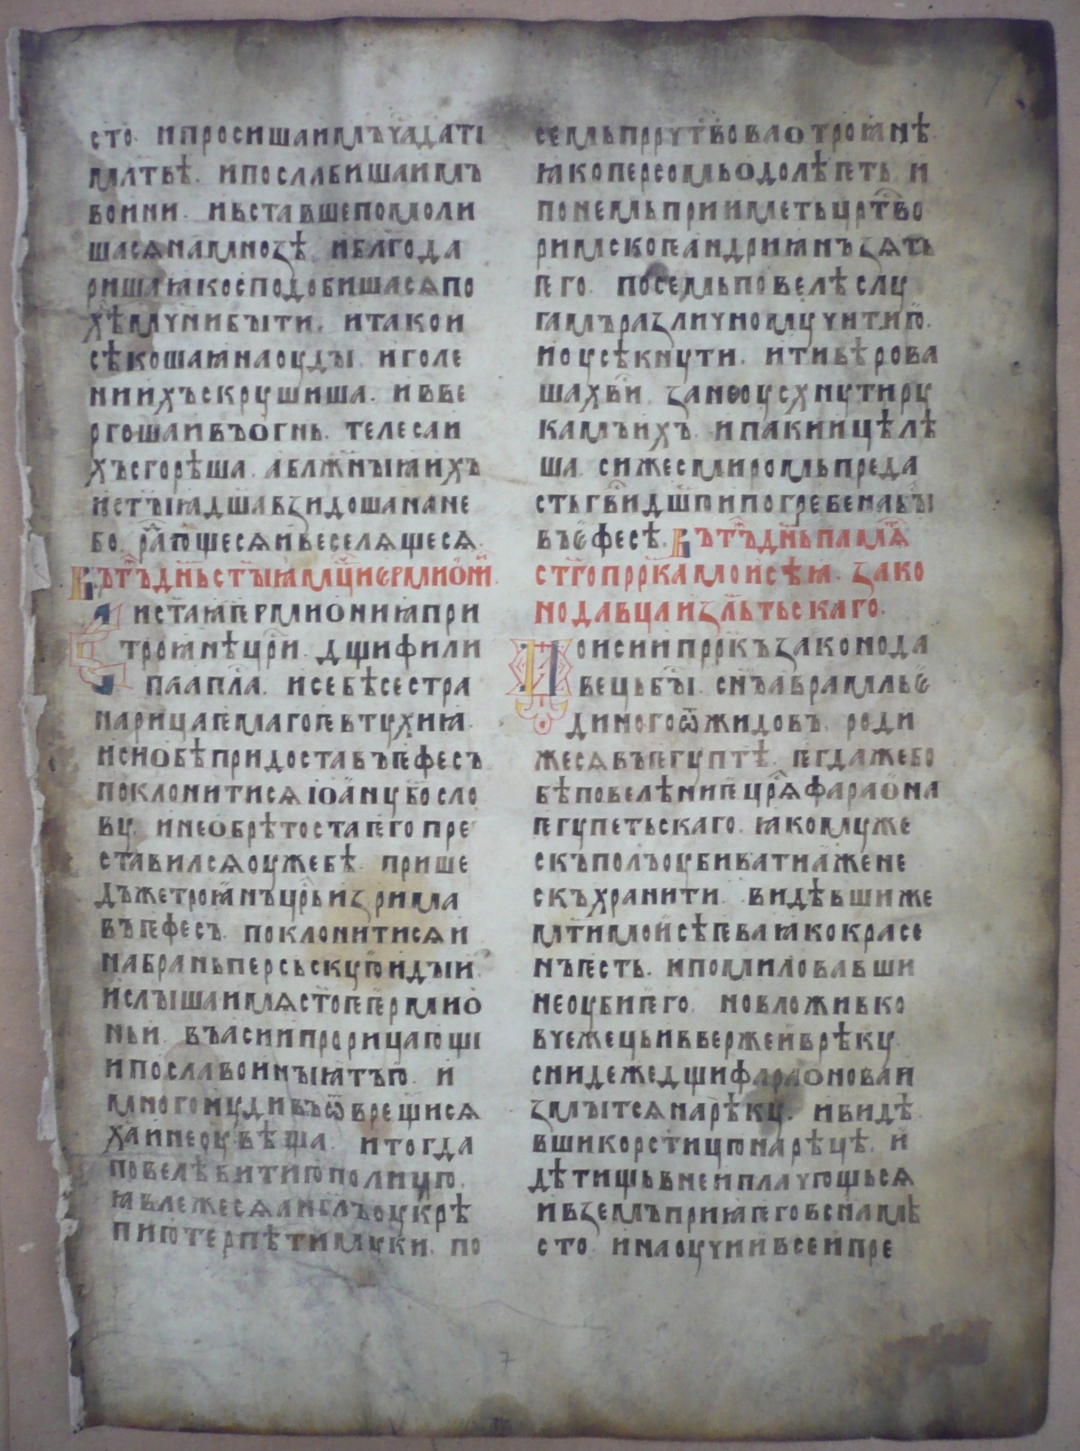 сто. и просиша имъ чѧ дати
млтвѣ. и послабиша имъ
воини. и въставше помоли
шасѧ на мнозѣ. и блгода
риша ꙗко сподобишасѧ по
хѣ мчни быти. и тако и
сѣкоша ꙗ на оуды. и голе
ни ихъ скрушиша. и вве
ргоша и въ огнь. телеса и
хъ сгорѣша. а блжныꙗ ихъ
истыꙗ дша взидоша на не
бо. рдꙋющесѧ и веселѧщесѧ.
Въ тъ днь стыꙗ мци ермиони.
Си стаꙗ ермиониꙗ при
троꙗнѣ цри. дщи фили
па апла. и себѣ сестра
нарицаѥмаго ѥвтухиꙗ.
и си обѣ придоста въ ѥфесъ
поклонитисѧ іоану бо҃сло
ву. и не обрѣтоста ѥго пре
ставилсѧ оуже бѣ. прише
дъ же троꙗнъ црь из рима
въ ѥфесъ. поклонитисѧ и
на брань персьскую идыи.
и слыша имѧ стоѥ ѥрмио
ньи. въ асии прорицающі
и посла воины ꙗти ю. и
много нудивъ ѿврещисѧ
ха и не оувѣща. и тогда
повелѣ бити ю по лицю.
ꙗвле же сѧ аи блъ оукрѣ
пи ю терпѣти муки. по
семь прртвова о троꙗнѣ.
ꙗко персомь одолѣѥть. и
по немь приимѥть цртво
римскоѥ андриꙗнъ зѧть
ѥго. посемь повелѣ слу
гамъ различно мучити ю.
и оусѣкнути. и ти вѣрова
ша хви. зане оусхнути ру
камъ ихъ. и пакы ицѣлѣ
ша. си же с миромь преда
сть гви дшю и погребена бы
въ ефесѣ. Въ тъ днь памѧ
стго пррка моисѣꙗ. зако
нодавца и злтьскаго.
Моиси пррк законода
вець бы. снъ авраамль е
диного ѿ жидовъ. роди
же сѧ въ ѥгуптѣ. ѥгда же бо
бѣ повелѣниѥ црѧ фараона
ѥгупетьскаго. ꙗко муже
скъ полъ оубивати а жене
скъ хранити. видѣвши же
мти моисѣѥва ꙗко красе
нъ ѥсть. и помиловавши
не оуби ѥго. но вложи в ко
вчежець и вверже и в рѣку
сниде же дщи фараонова и
змытсѧ на рѣку. и видѣ
вши корстицю на рѣцѣ. и
дѣтищь в неи плачющьсѧ
и вземъ приꙗ ѥго в сна мѣ
сто. и наоучи и всеи пре